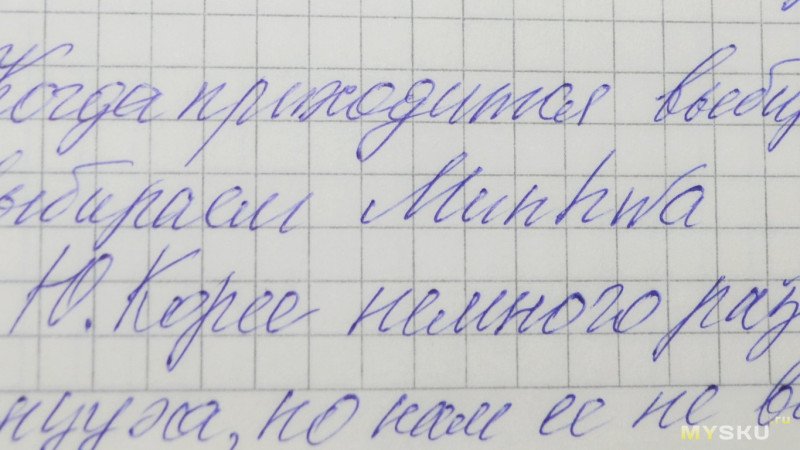 Когда приходится выби
выбираем Минтна
Ю. Корее немного раз
нцуха, но нам ее не в
MYSKU.ru